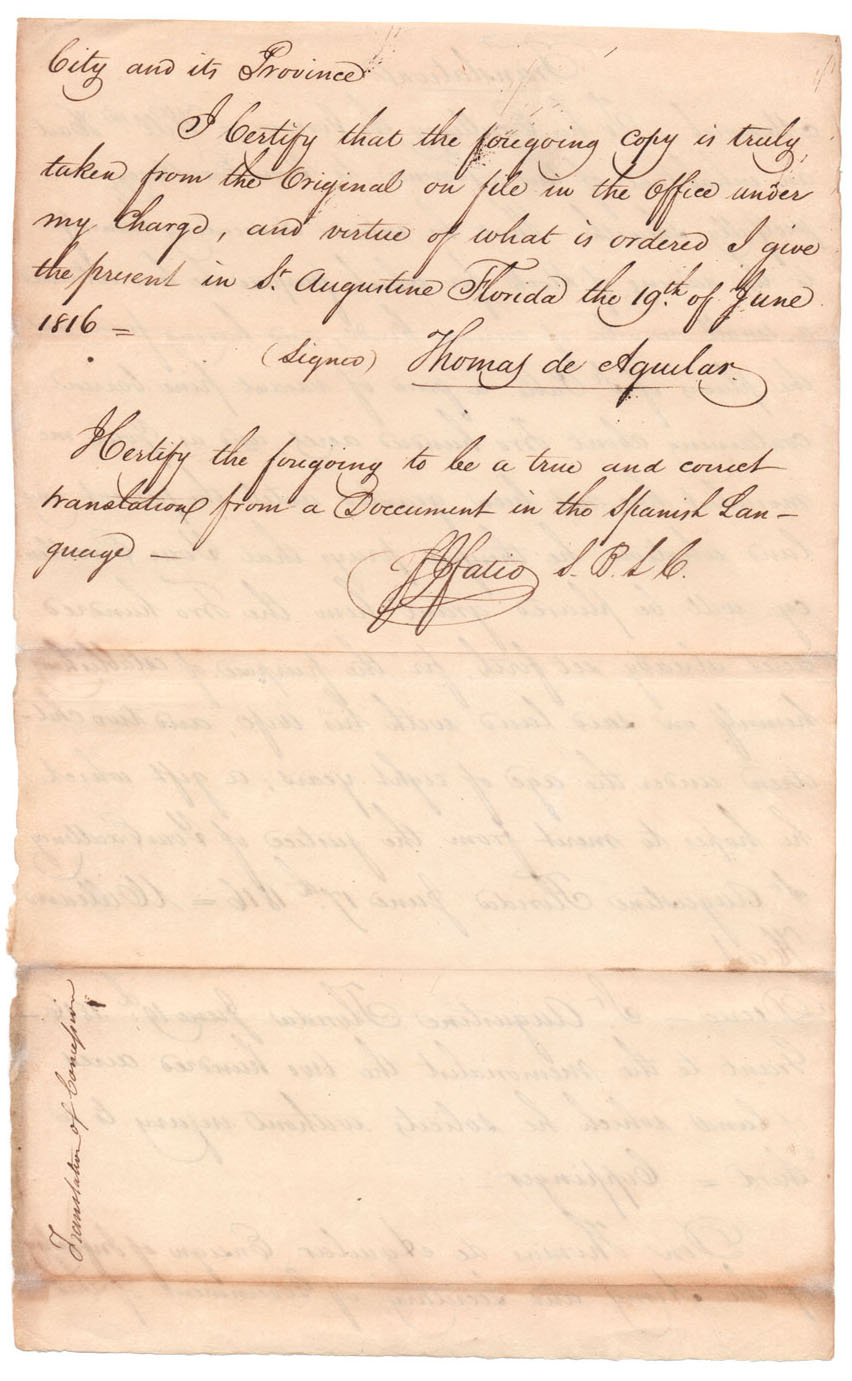 City and its Province
I Certify that the foregoing copy is truly
taken from the Original on file in the Office under
my Charge, and virtue of what is ordered I give
the present in St. Augustine Florida the 19th. of June
1816 =
(Signed) Thomas de Aguilar.
I Certify the foregoing to be a true and correct
translation from a Document in the Spanish Lan-
guage —
FJFatio S. B. L. C.
Translation of Concession